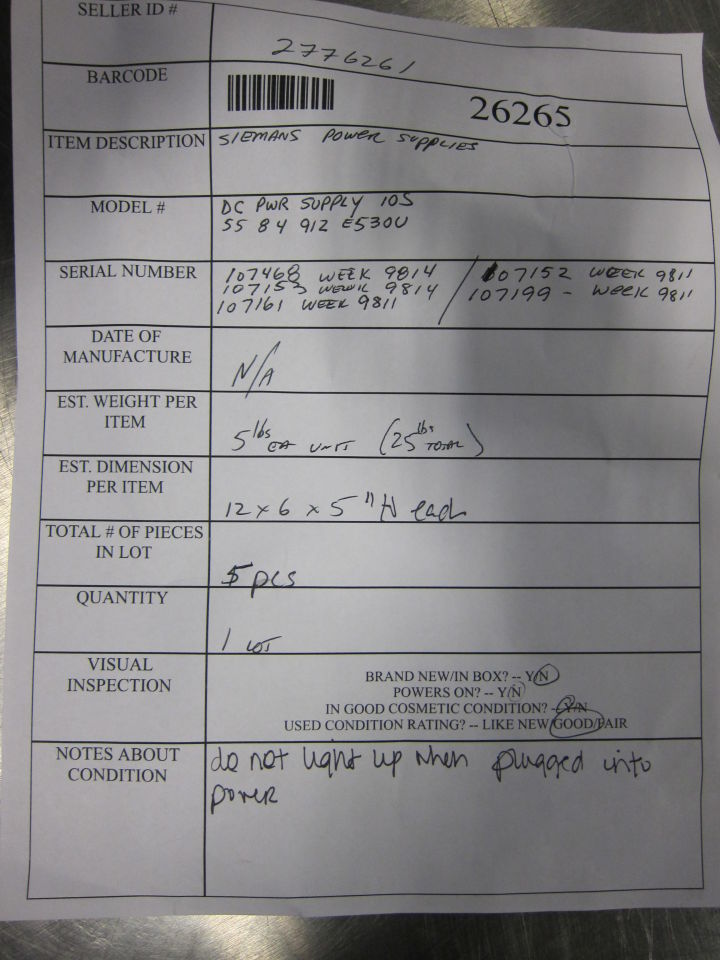 SELLER ID #
2776261
BARCODE
26265
ITEM DESCRIPTION
SIEMANS POWER SUPPLIES
MODEL #
DC PWR SUPPLY 105
55 84 912 E530U
SERIAL NUMBER
107468 WEEK 9814 / 107152 WEEK 9811
107153 WEEK 9814 107199 - WEEK 9811
107161 WEEK 9811
DATE OF
MANUFACTURE
N/A
EST. WEIGHT PER
ITEM
5 lbs EA UNIT (25 lbs TOTAL)
EST. DIMENSION
PER ITEM
12 x 6 x 5 "H each
TOTAL # OF PIECES
IN LOT
5 pcs
QUANTITY
1 LOT
VISUAL
INSPECTION
BRAND NEW/IN BOX? -- Y/N
POWERS ON? -- Y/N
IN GOOD COSMETIC CONDITION? -- Y/N
USED CONDITION RATING? -- LIKE NEW/GOOD/FAIR
NOTES ABOUT
CONDITION
do not light up when plugged into
power